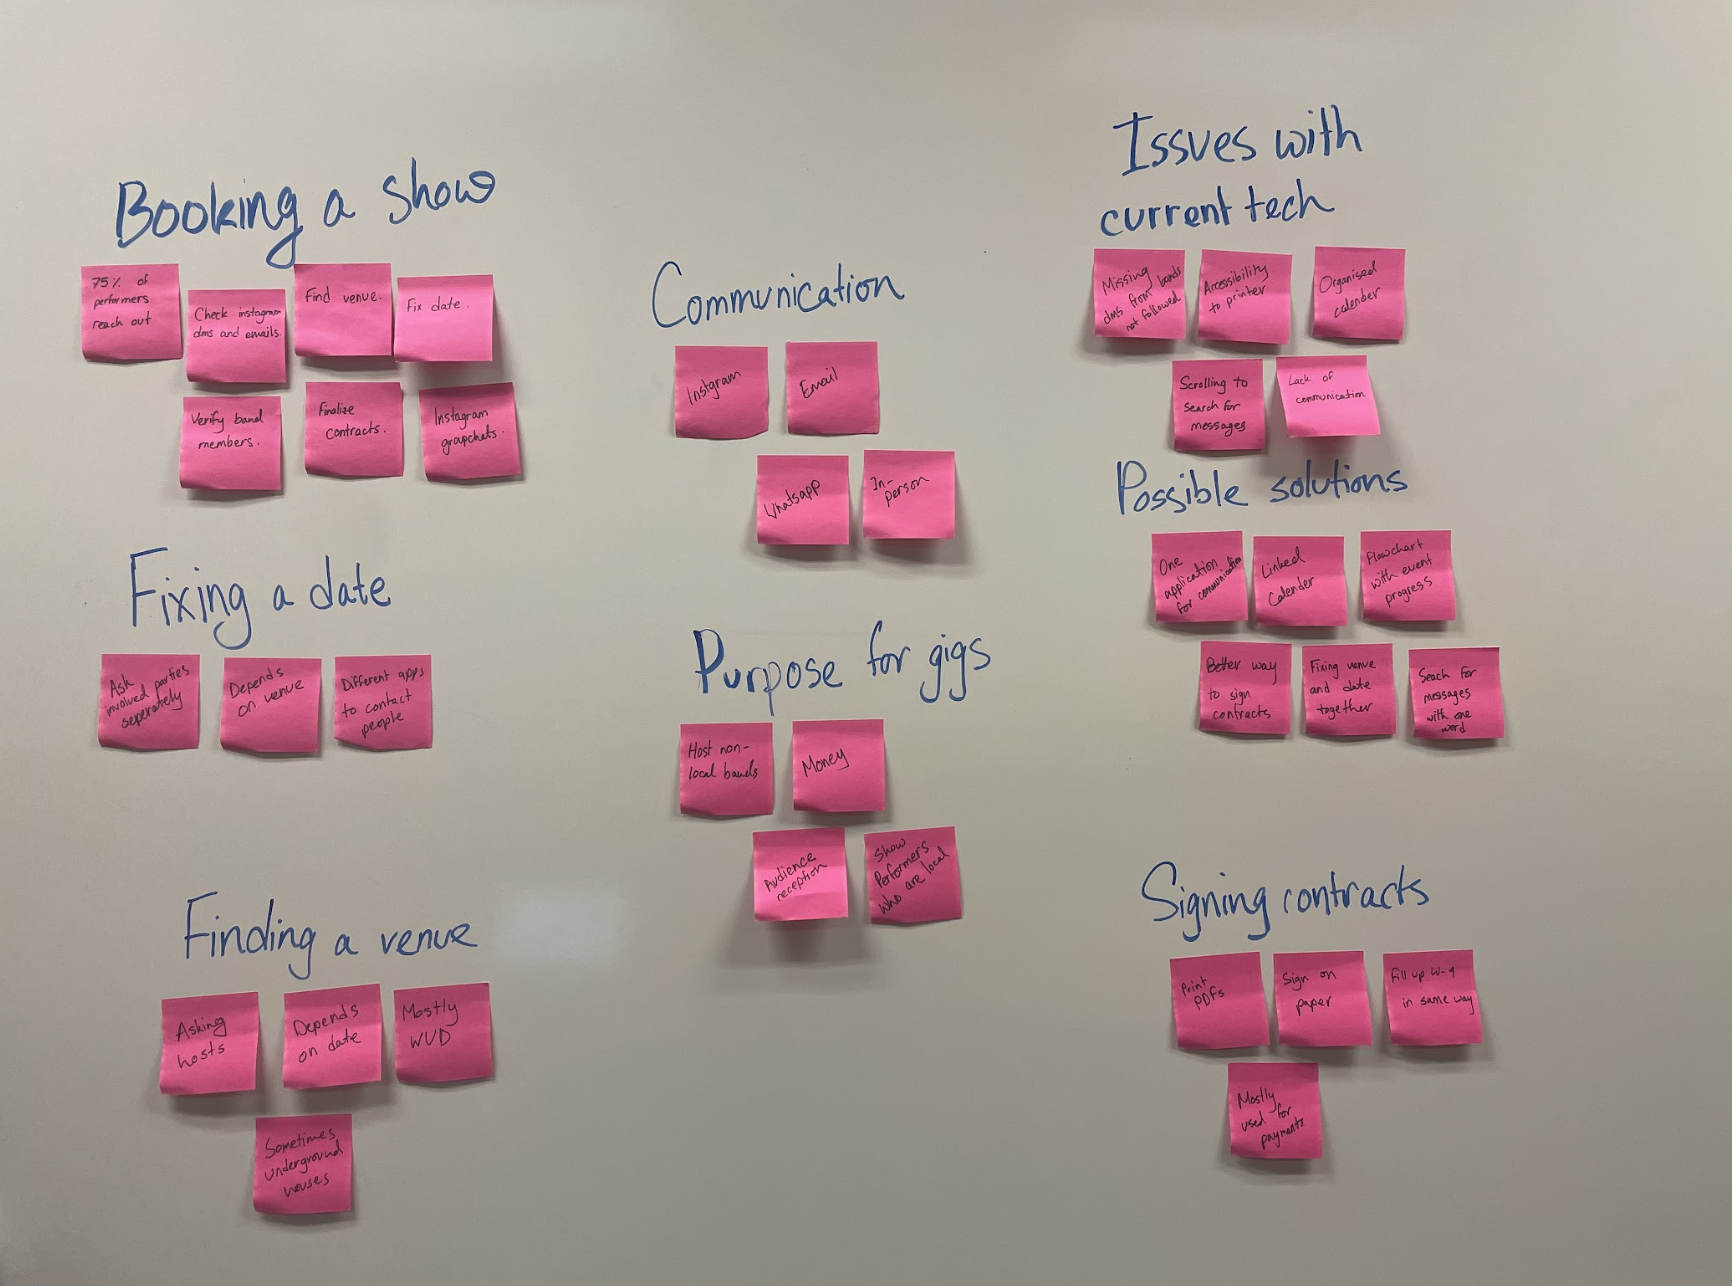 Booking a show
75% of
performers
reach out
Check instagram
dms and emails.
Find venue.
Fix date.
Verify band
members.
Finalize
contracts.
Instagram
grapchats.
Fixing a date
Ask
involved parties
seperately
Depends
on venue
Different apps
to contact
people
Finding a venue
Asking
hosts
Depends
on date
Mostly
WUD
Sometimes
underground
houses
Communication
Instgram
Email
Whatsapp
In-
person
Purpose for gigs
Host non-
local bands
Money
Audience
reception
Show
Performers
who are local
Issues with
current tech
Missing
dms from bands
not followed
Accessibility
to printer
Organised
calender
Scrolling to
search for
messages
Lack of
communication
Possible solutions
One
application
for communication
Linked
Calender
Flowchart
with event
progress
Better way
to sign
contracts
Fixing venue
and date
together
Seach for
messages
with one
word
Signing contracts
Print
PDFs
Sign on
paper
Fill up W-9
in same way
Mostly
used for
payments